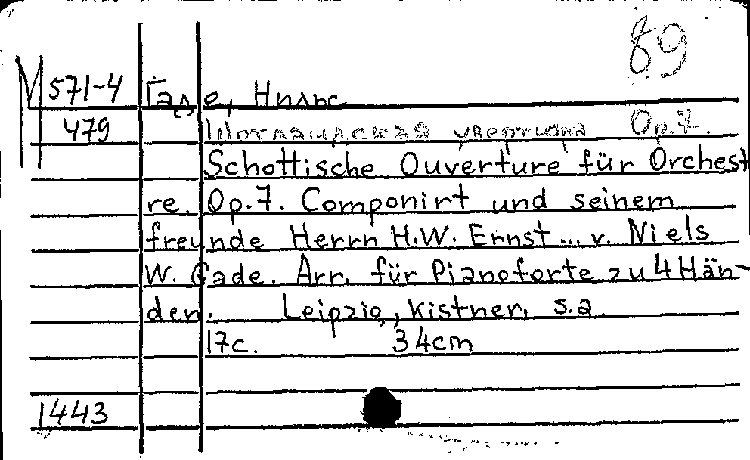 89
М 571-4 Гаде, Нильс
479 Шотландская увертюра Op.7.
Schottische Ouverture für Orchest
re. Op.7. Componirt und seinem
freunde Herrn H.W. Ernst... v. Niels
W. Gade. Arr. für Pianoforte zu 4 Hän-
den. Leipzig, Kistner, s.a
17c. 34cm
1443